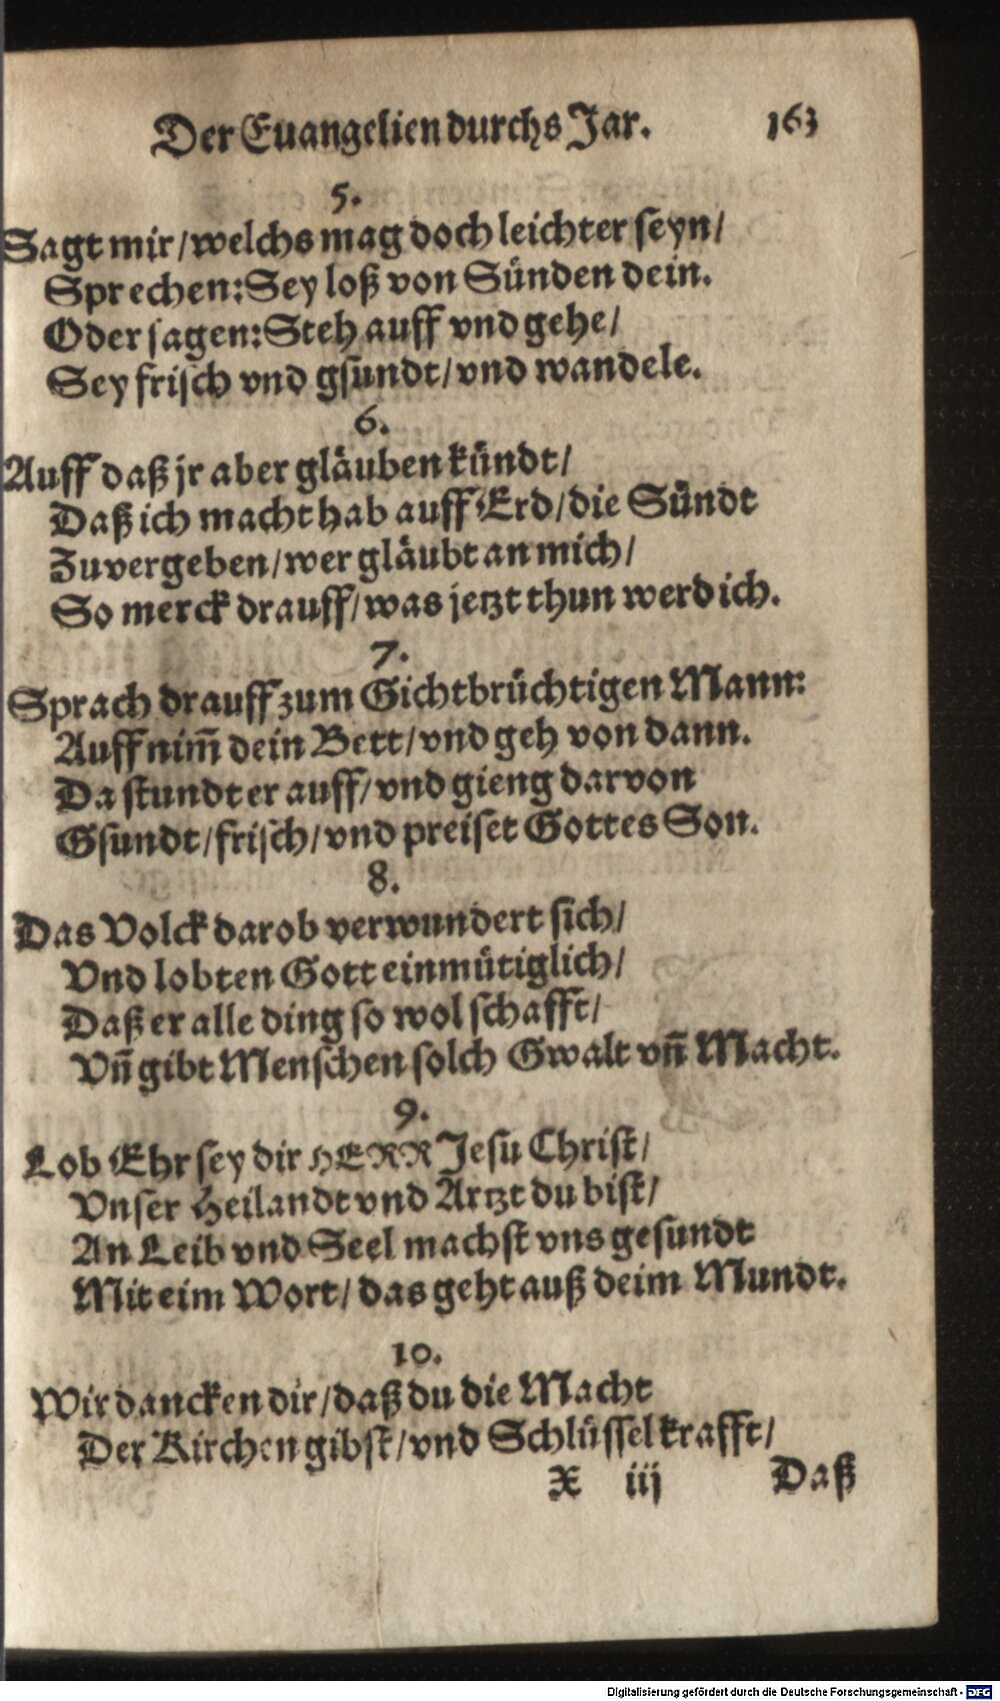 Der Euangelien durchs Jar. 163
5.
Sagt mir/ welchs mag doch leichter seyn/
Sprechen: Sey loß von Sünden dein.
Oder sagen: Steh auff vnd gehe/
Sey frisch vnd gsundt/ vnd wandele.
6.
Auff daß jr aber gläuben kündt/
Daß ich macht hab auff Erd/ die Sündt
Zuvergeben/ wer gläubt an mich/
So merck drauff/ was jetzt thun werd ich.
7.
Sprach drauff zum Gichtbrüchtigen Mann:
Auff nim̃ dein Bett/ vnd geh von dann.
Da stundt er auff/ vnd gieng darvon
Gsundt/ frisch/ vnd preiset Gottes Son.
8.
Das Volck darob verwundert sich/
Vnd lobten Gott einmütiglich/
Daß er alle ding so wol schafft/
Vñ gibt Menschen solch Gwalt vñ Macht.
9.
Lob Ehr sey dir HERR Jesu Christ/
Vnser Heilandt vnd Artzt du bist/
An Leib vnd Seel machst vns gesundt
Mit eim Wort/ das geht auß deim Mundt.
10.
Wir dancken dir/ daß du die Macht
Der Kirchen gibst/ vnd Schlüssel krafft/
X iij Daß
Digitalisierung gefördert durch die Deutsche Forschungsgemeinschaft - DFG